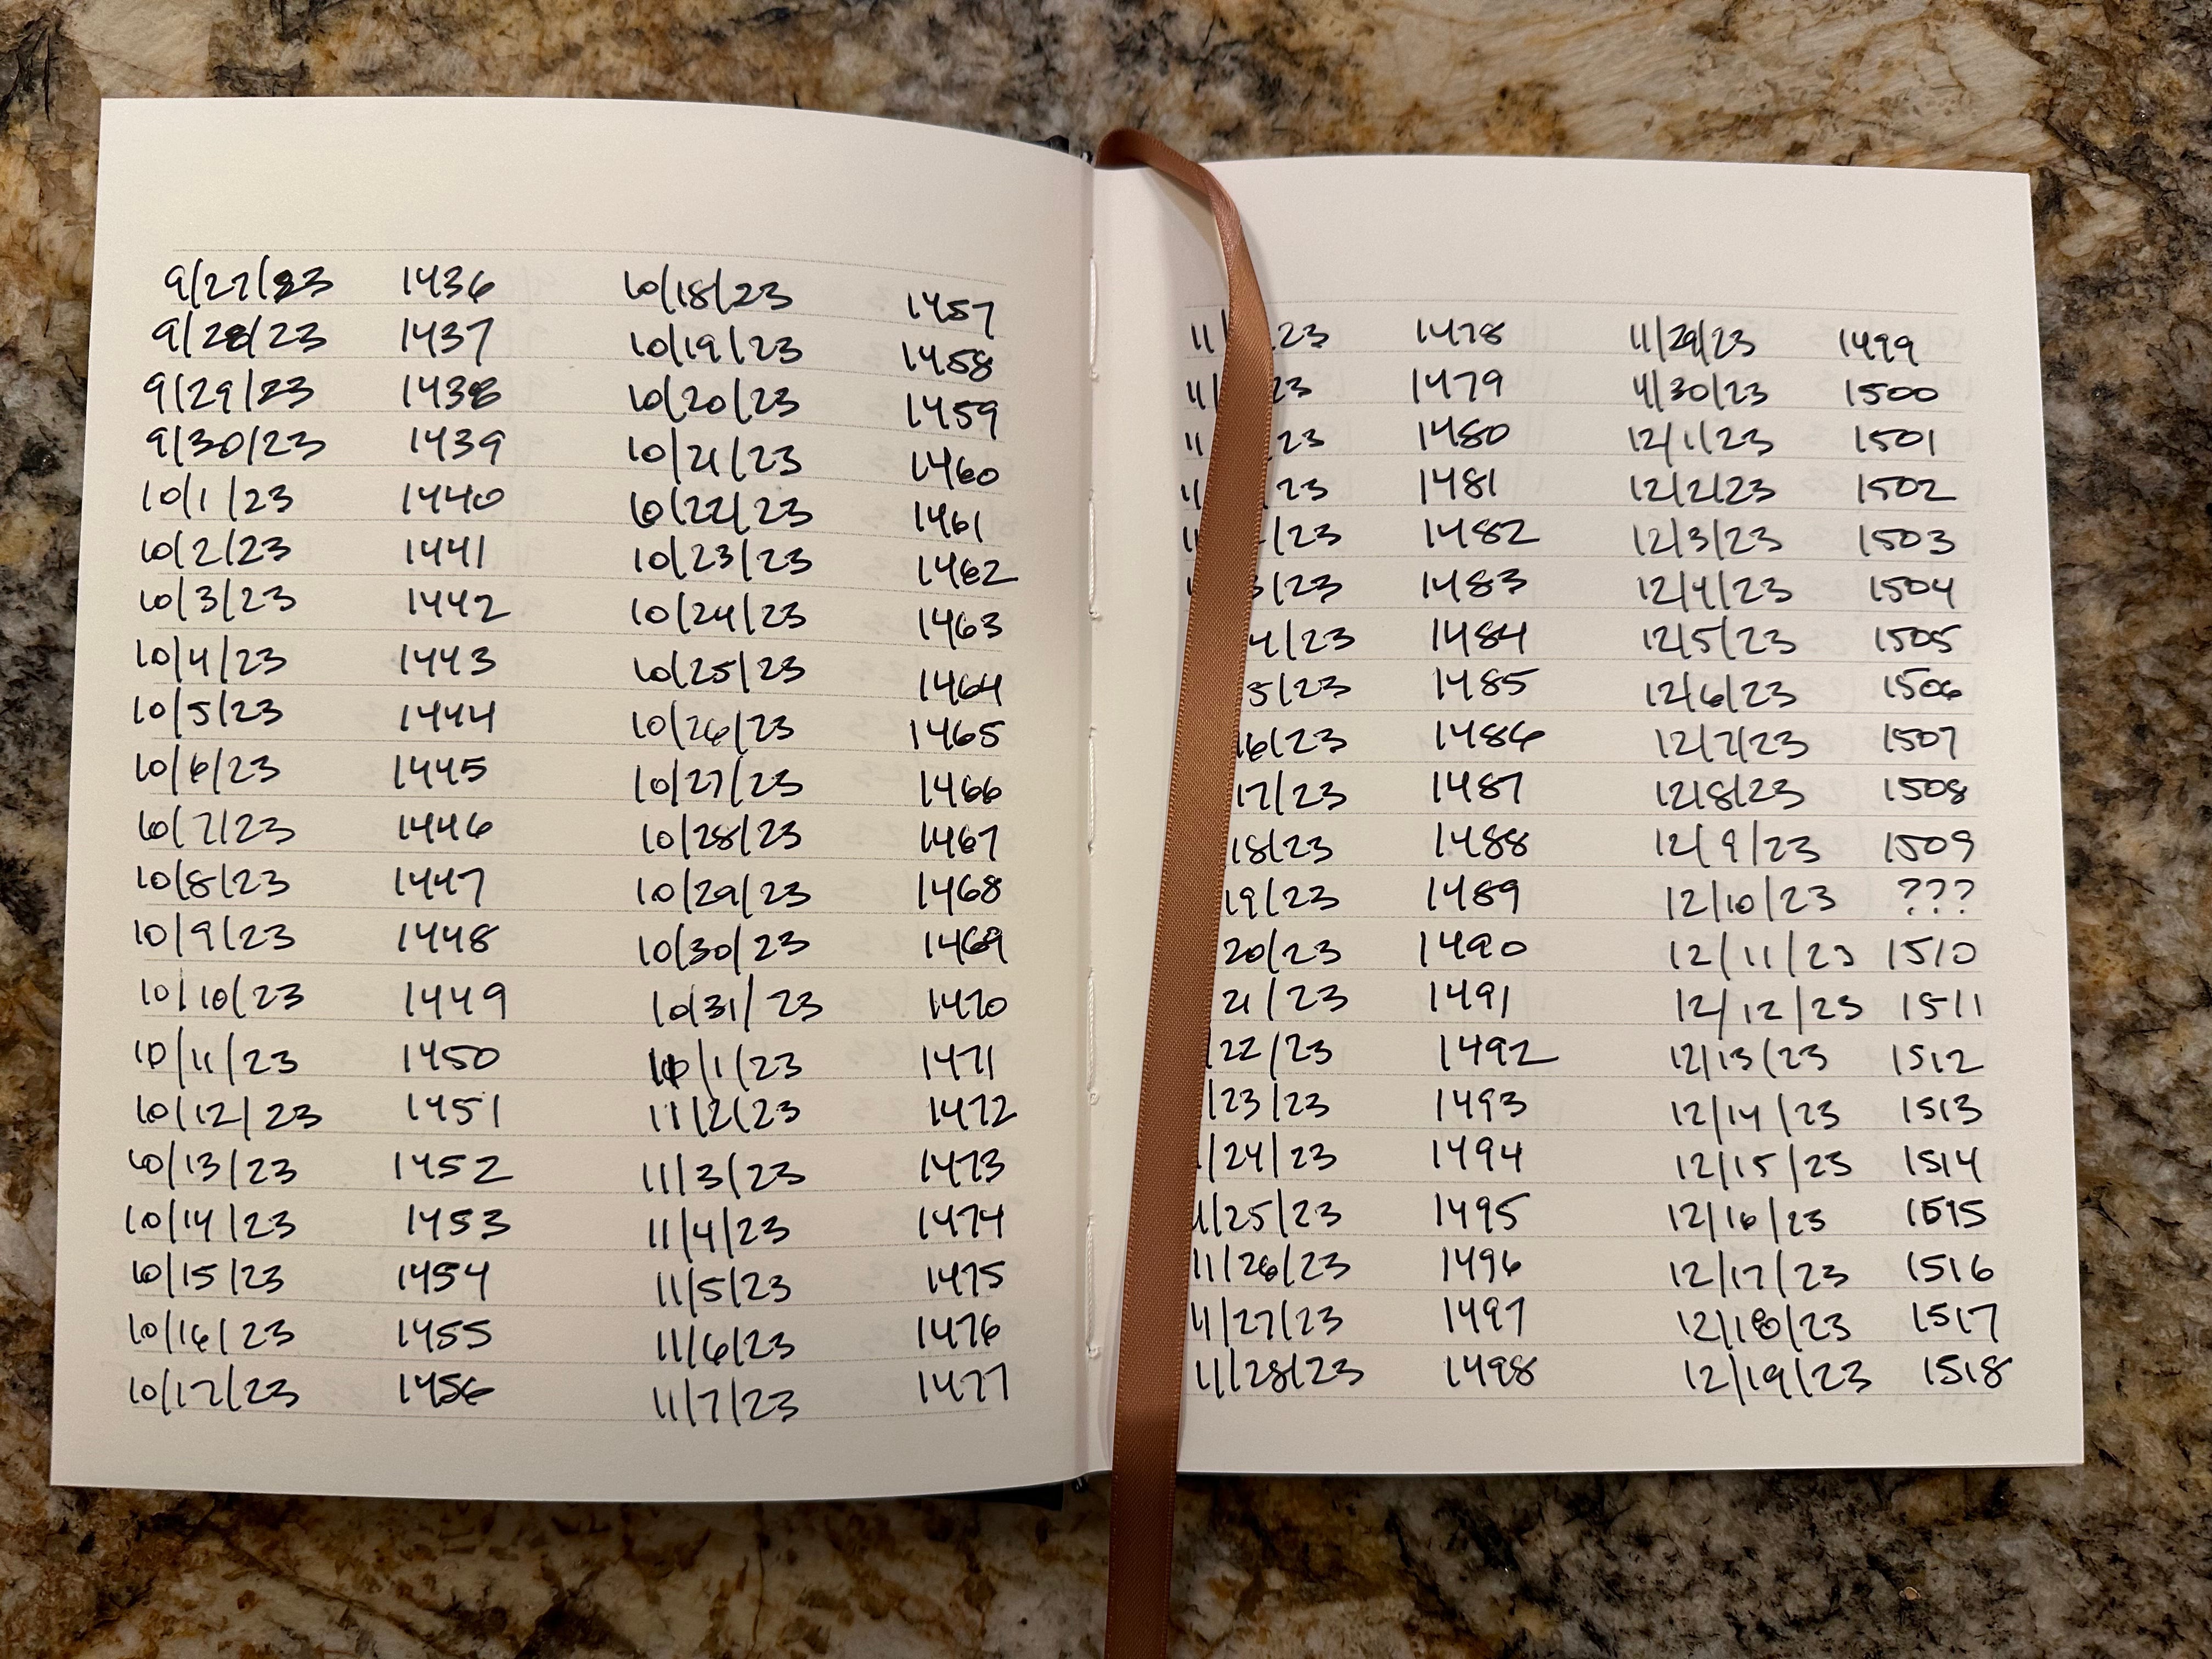 9/27/23 1436
9/28/23 1437
9/29/23 1438
9/30/23 1439
10/1/23 1440
10/2/23 1441
10/3/23 1442
10/4/23 1443
10/5/23 1444
10/6/23 1445
10/7/23 1446
10/8/23 1447
10/9/23 1448
10/10/23 1449
10/11/23 1450
10/12/23 1451
10/13/23 1452
10/14/23 1453
10/15/23 1454
10/16/23 1455
10/17/23 1456
10/18/23 1457
10/19/23 1458
10/20/23 1459
10/21/23 1460
10/22/23 1461
10/23/23 1462
10/24/23 1463
10/25/23 1464
10/26/23 1465
10/27/23 1466
10/28/23 1467
10/29/23 1468
10/30/23 1469
10/31/23 1470
11/1/23 1471
11/2/23 1472
11/3/23 1473
11/4/23 1474
11/5/23 1475
11/6/23 1476
11/7/23 1477
11/ 23 1478
11/ 23 1479
11 23 1480
11/ 23 1481
11 /23 1482
3/23 1483
4/23 1484
5/23 1485
16/23 1486
17/23 1487
18/23 1488
19/23 1489
20/23 1490
21/23 1491
/22/23 1492
/23/23 1493
/24/23 1494
1/25/23 1495
11/26/23 1496
11/27/23 1497
11/28/23 1498
11/29/23 1499
11/30/23 1500
12/1/23 1501
12/2/23 1502
12/3/23 1503
12/4/23 1504
12/5/23 1505
12/6/23 1506
12/7/23 1507
12/8/23 1508
12/9/23 1509
12/10/23 ???
12/11/23 1510
12/12/23 1511
12/13/23 1512
12/14/23 1513
12/15/23 1514
12/16/23 1515
12/17/23 1516
12/18/23 1517
12/19/23 1518